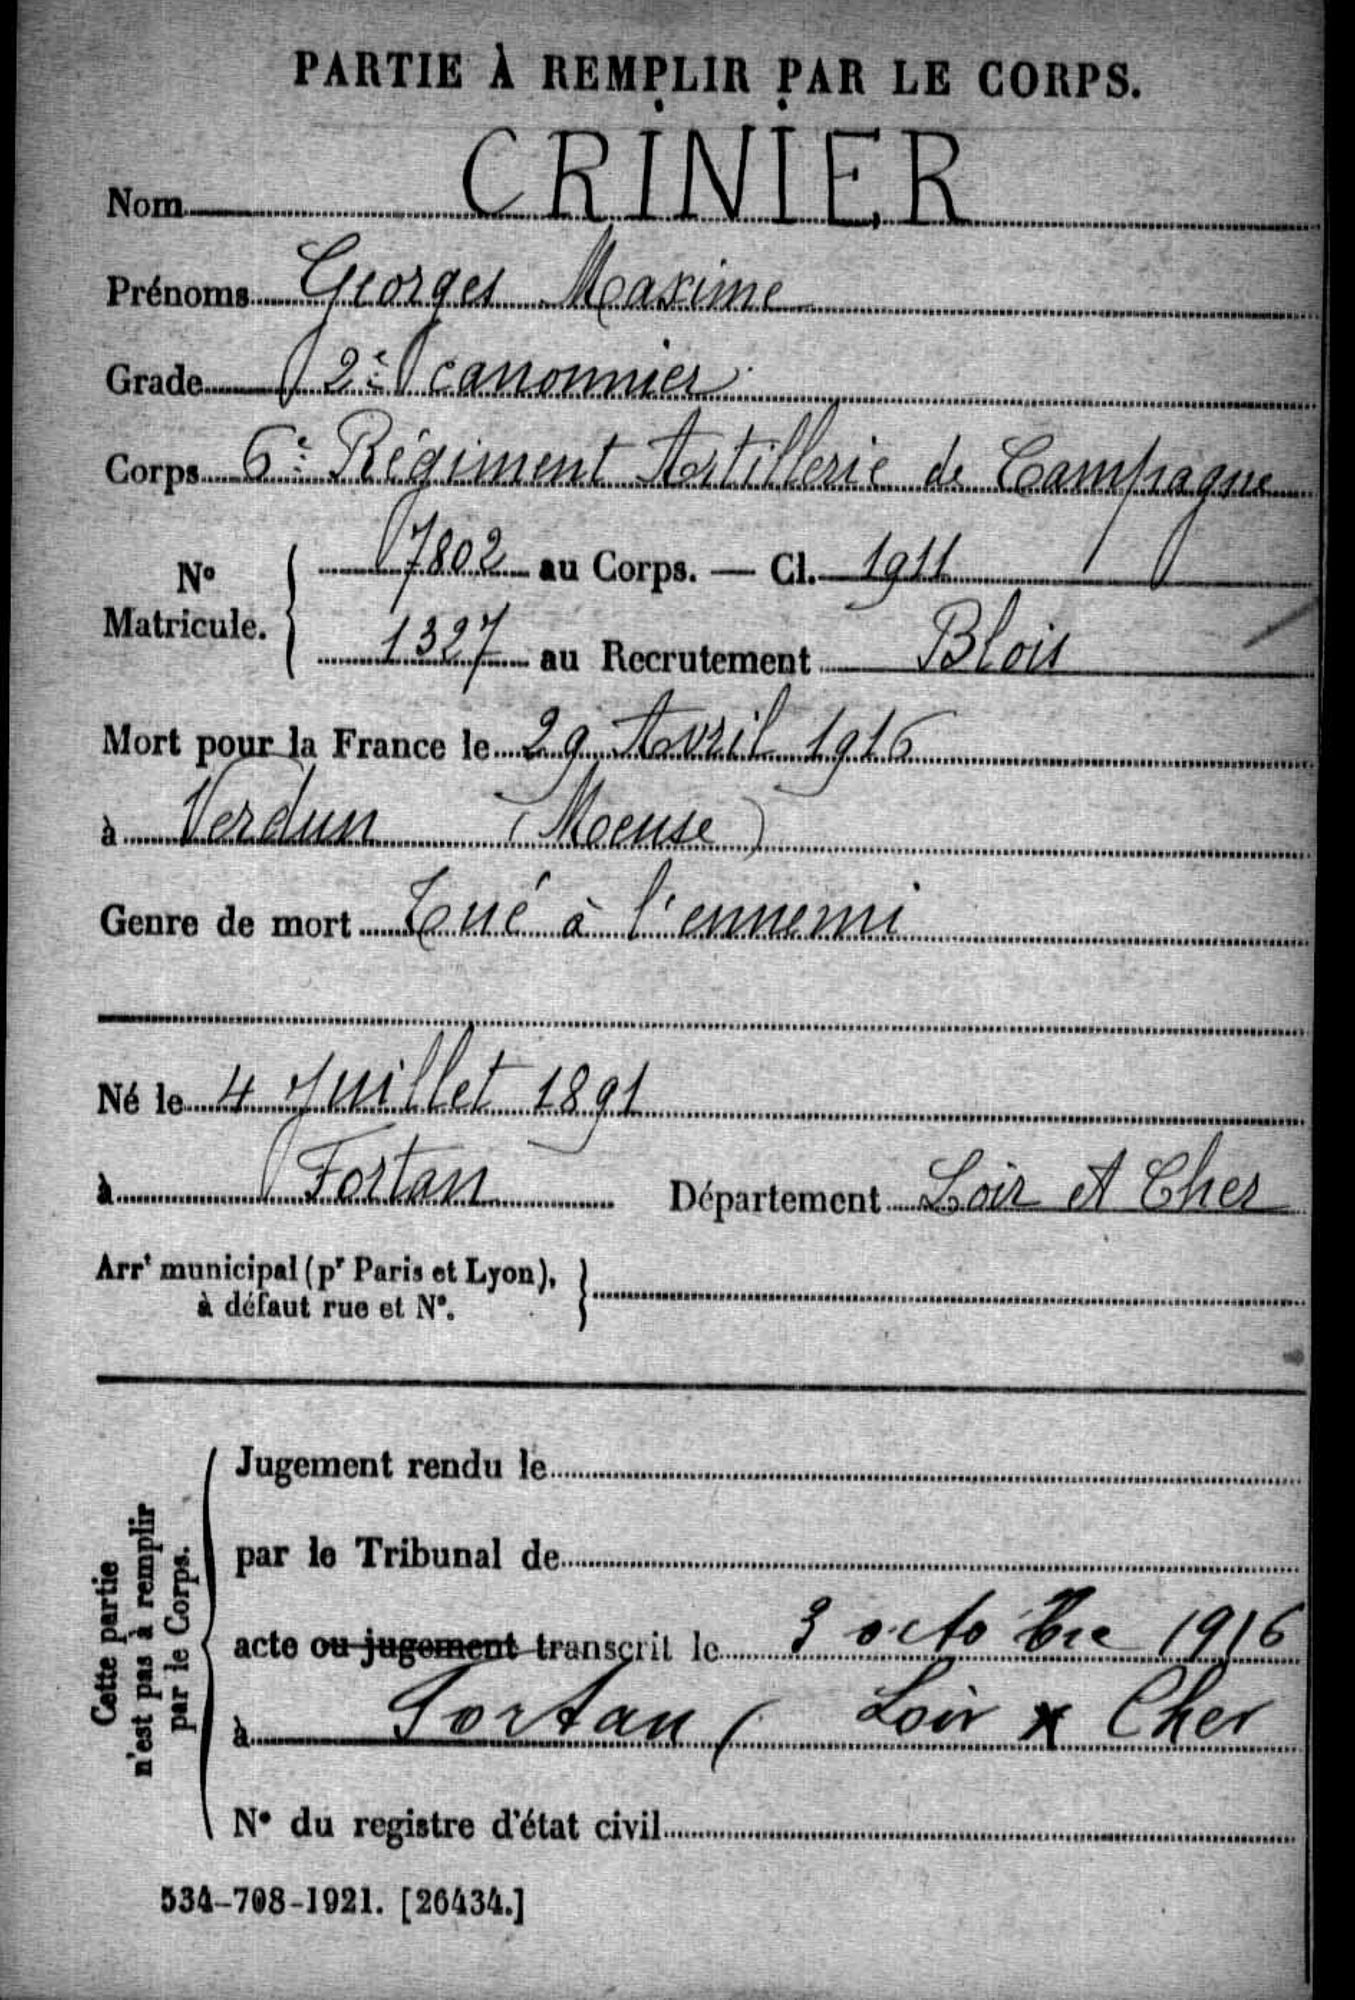 PARTIE À REMPLIR PAR LE CORPS.
Nom CRINIER
Prénoms Georges Maxime
Grade 2e canonnier
Corps 6e Régiment Artillerie de Campagne
No Matricule. 7802 au Corps. — Cl. 1911
1327 au Recrutement Blois
Mort pour la France le 29 Avril 1916
à Verdun (Meuse)
Genre de mort Tué à l'ennemi
Né le 4 Juillet 1891
à Fortan Département Loir et Cher
Arrt municipal (pr Paris et Lyon),
à défaut rue et No.
Cette partie
n'est pas à remplir
par le Corps.
Jugement rendu le
par le Tribunal de
acte ou jugement transcrit le 3 octobre 1916
à Fortan ( Loir x Cher
No du registre d'état civil
534-708-1921. [26434.]